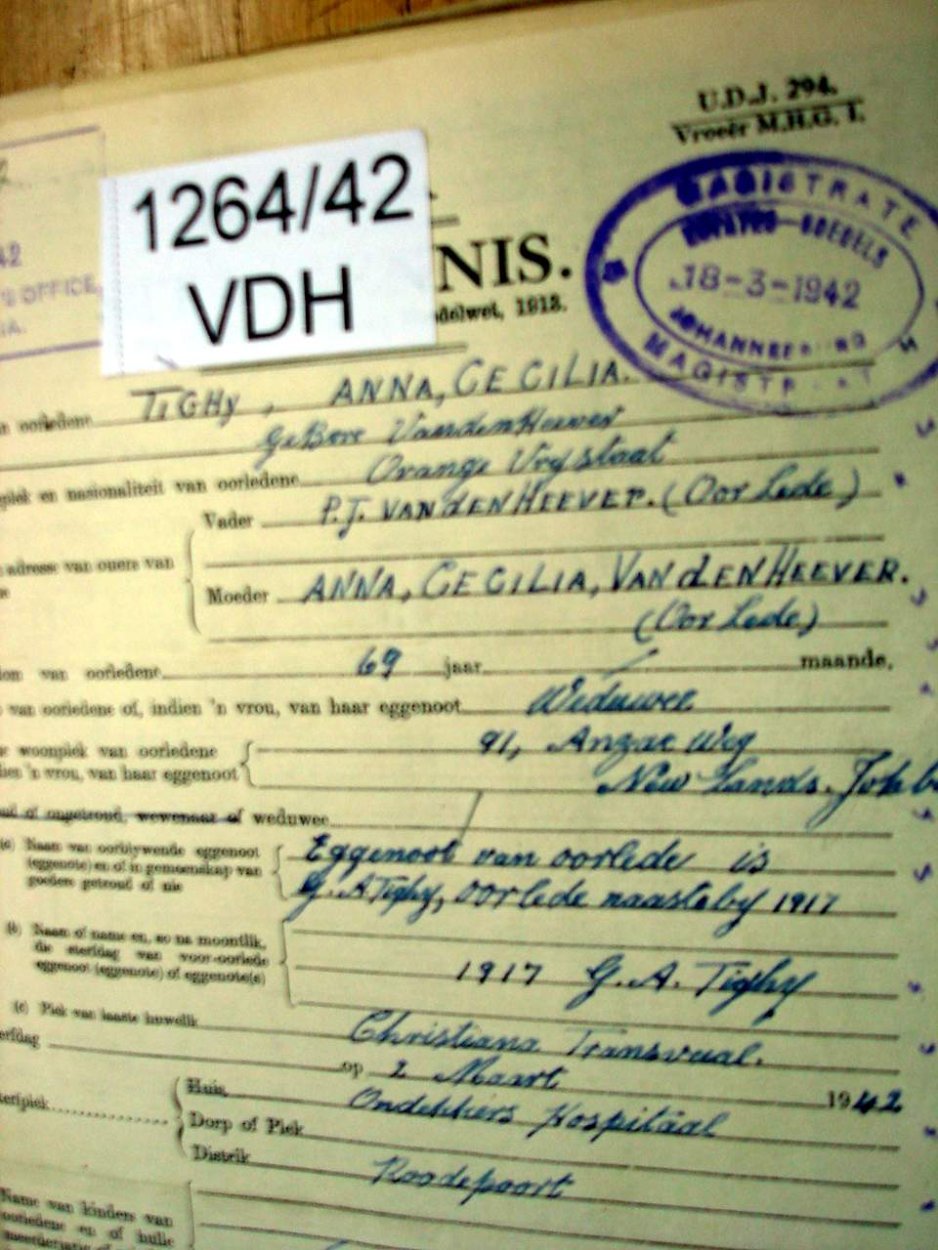 U.D.J. 294.
Vroeër M.H.G. 1.
1264/42
VDH
NIS.
delwet, 1913.
MAGISTRATE
BOEDELS
18-3-1942
JOHANNESBURG
42
OFFICE
oorledene TIGHY, ANNA, CECILIA.
GeBore VandenHeever
en nasionaliteit van oorledene Orange Vrystaat
Vader P.J. VANdENHEEVER. (Oor Lede)
adresse van ouers van
Moeder ANNA, CECILIA, VANdENHEEVER.
(Oor Lede)
van oorledene 69 jaar maande,
van oorledene of, indien 'n vrou, van haar eggenoot Weduwee
woonplek van oorledene 91, Anzac Weg
'n vrou, van haar eggenoot New Lands. Joh
of ongetroud, wewenaar of weduwee
(a) Naam van oorblywende eggenoot Eggenoot van oorlede is
(eggenote) en of in gemeenskap van G. A Tighy, oorlede naasteby 1917
goedere getroud of nie
(b) Naam of name en, so na moontlik,
die sterfdag van voor-oorlede 1917 G. A. Tighy
eggenoot (eggenote) of eggenote(s)
(c) Plek van laaste huwelik Christiana Transvaal.
op 2 Maart 1942
Huis Ondekkers Hospitaal
Dorp of Plek
Distrik Roodepoort
Name van kinders van
oorledene en of hulle